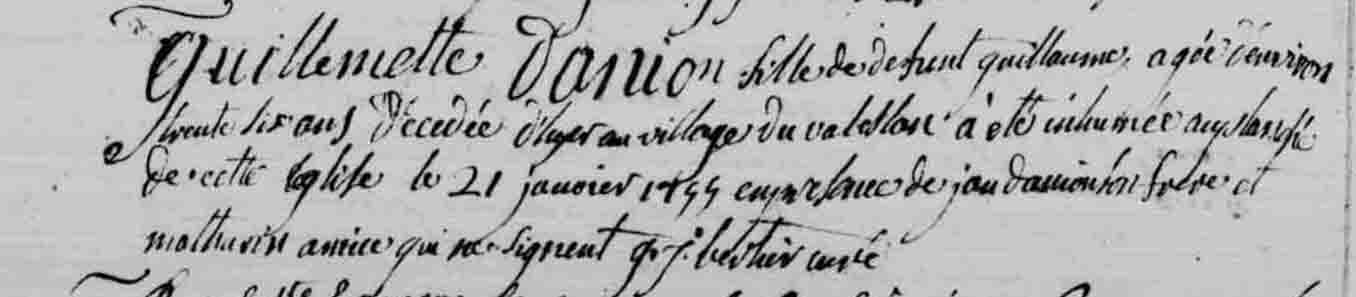 Guillemette Danion fille de defunt guillaume, agée d'environ
trente six ans décedée d'hyer au village du val eslan à eté inhumée au placistre
de cette église le 21 janvier 1755 en presence de jan danion son frere et
mathurin amice qui ne signent berthier curé